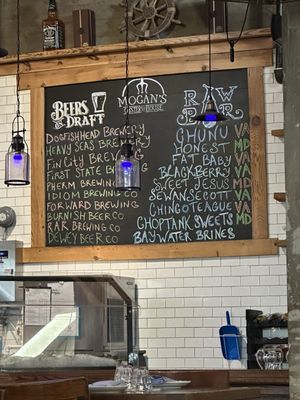 MOGAN'S
OYSTER HOUSE
BEERS
ON DRAFT
DOGFISHHEAD BREWERY
HEAVY SEAS BREWING
FIN CITY BREWING
FIRST STATE BREWING
PHERM BREWING
IDIOM BREWING CO
FORWARD BREWING
BURNISH BEER CO
RAR BREWING
DEWEY BEER CO
RAW BAR
CHUNU VA
HONEST MD
FAT BABY VA
BLACKBERRY VA
SWEET JESUS MD
SEWANSECOTT VA
CHINCOTEAGUE VA
CHOPTANK SWEETS MD
BAY WATER BRINES VA